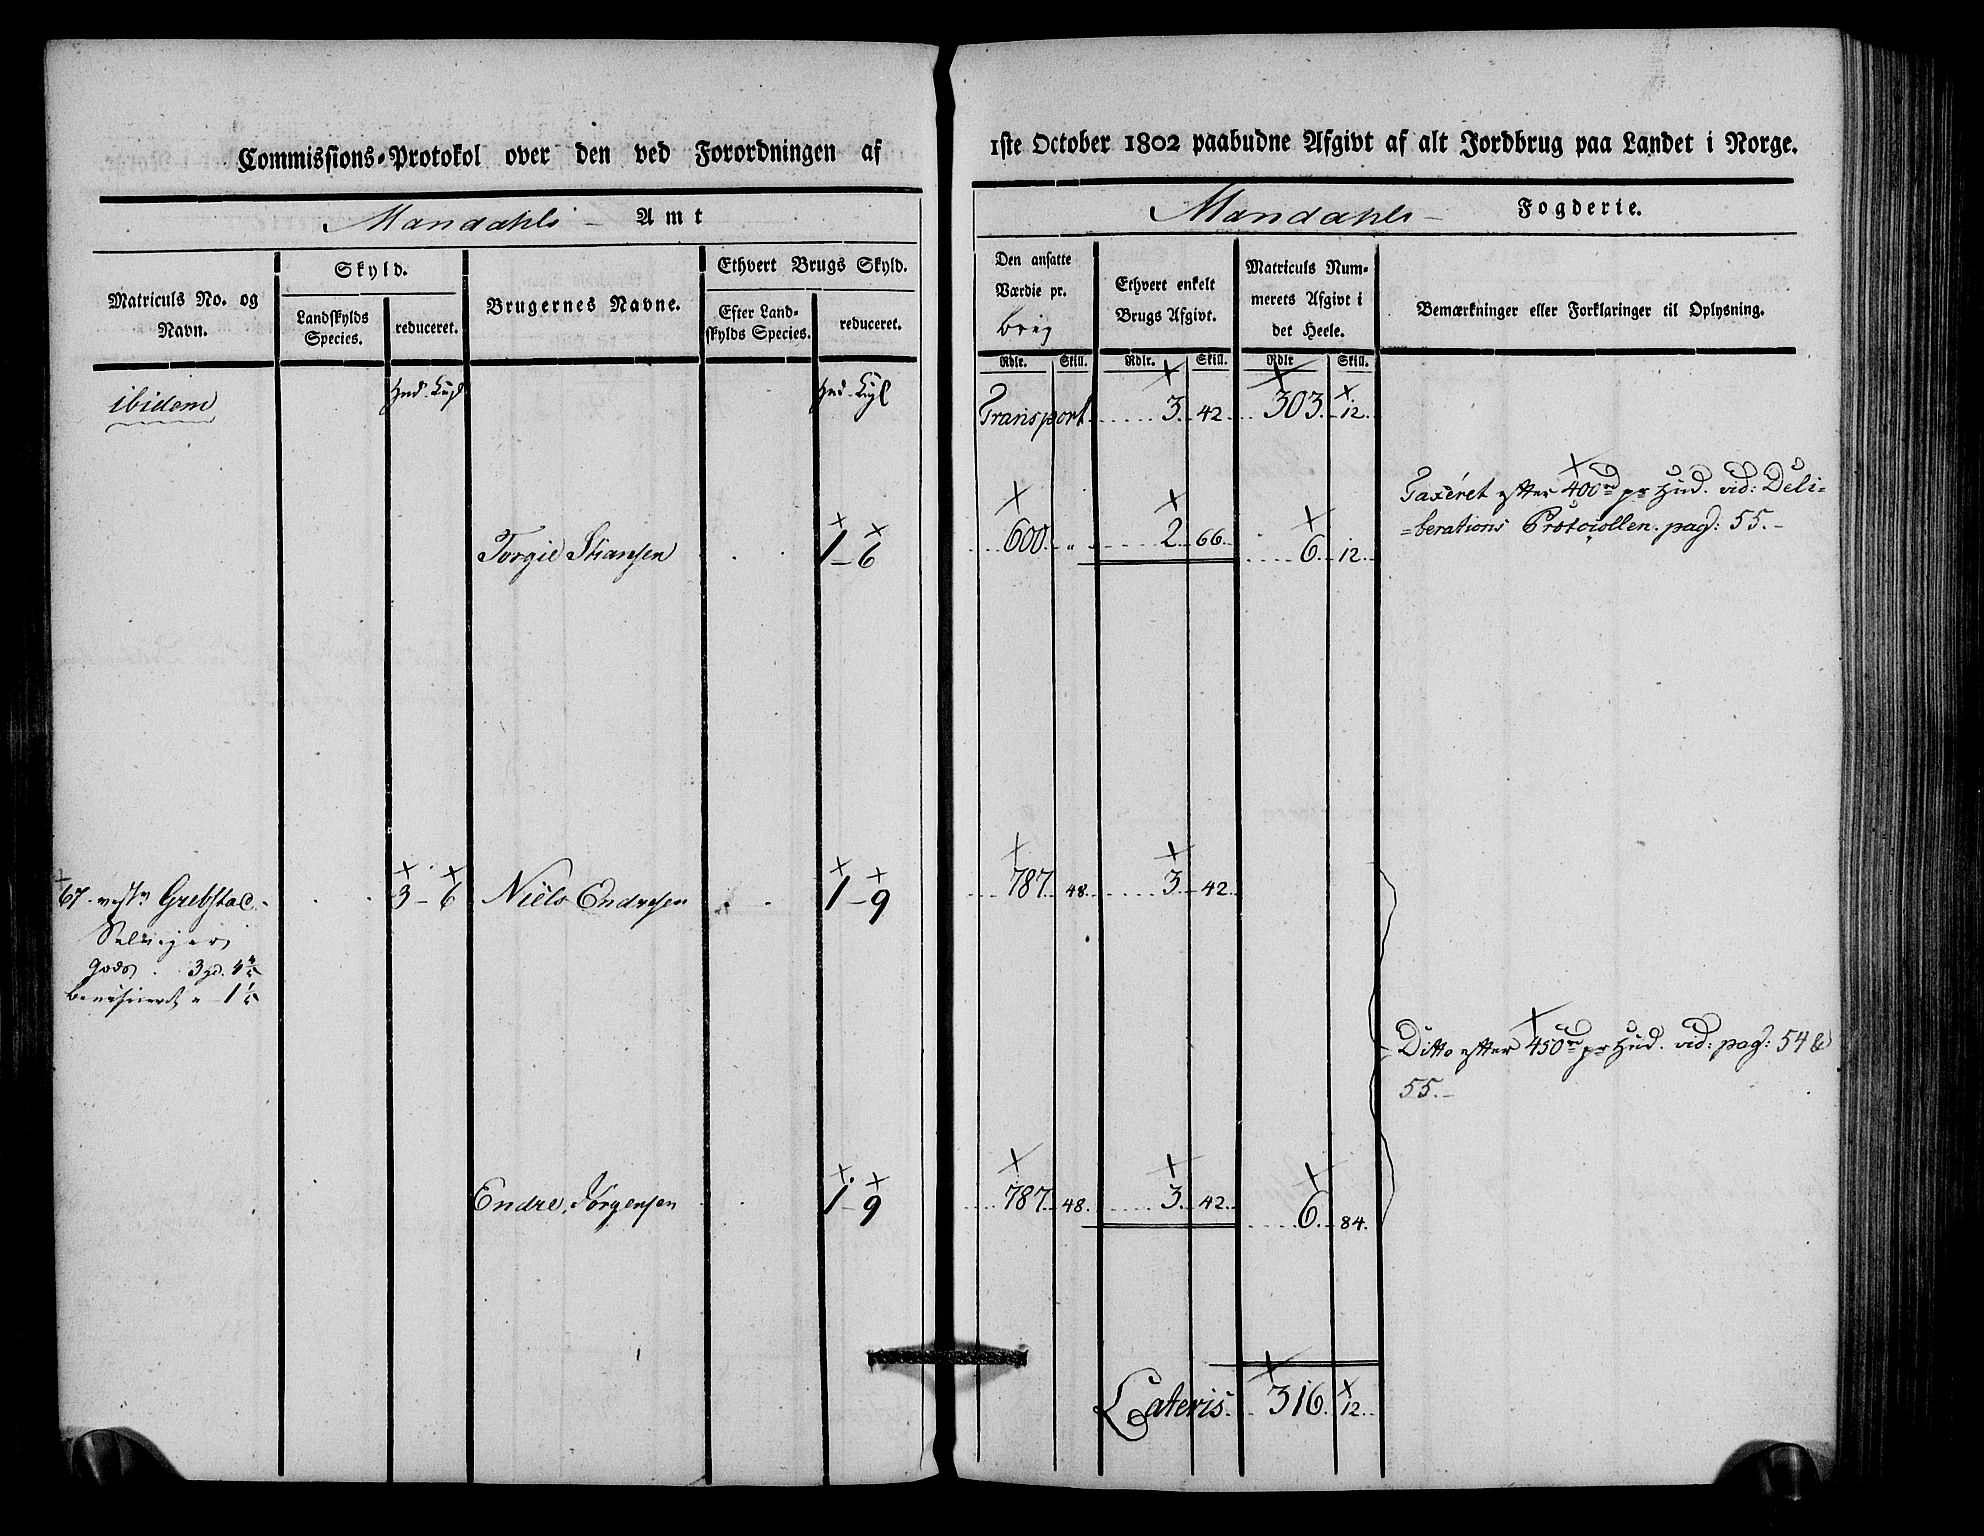 Commissions-Protokol over den ved Forordningen af 1ste October 1802 paabudne Afgivt af alt Jordbrug paa Landet i Norge.
Mandahls Amt
Mandahls Fogderie.
Matriculs No. og Navn.
Skyld.
Landskylds Species.
reduceret.
Brugernes Navne.
Ethvert Brugs Skyld.
Efter Landskylds Species.
reduceret.
Den ansatte Værdie pr. brug
Ethvert enkelt Brugs Afgivt.
Matriculs Nummerets Afgivt i det Heele.
Bemærkninger eller Forklaringer til Oplysning.
Rdlr. Skill. Rdlr. Skill. Rdlr Skill.
ibidem
Transport 3. 42. 303. 12.
Torgie Stiansen 1 - 6 600. " 2. 66. 6. 12.
Taxéret efter 400 rd pr Hud. vid: Deli=
=berations Protocollen. pag: 55.-
67. vestr Grebstad. 3 - 6 Niels Endresen 1 - 9 787. 48. 3. 42.
Gods. 3 hd.
beneficeret
Ditto efter 450 rd pr Hud. vid: pag: 54 &
55.-
Endre Jörgensen 1 - 9 787. 48. 3. 42. 6. 84.
Lateris. 316. 12.